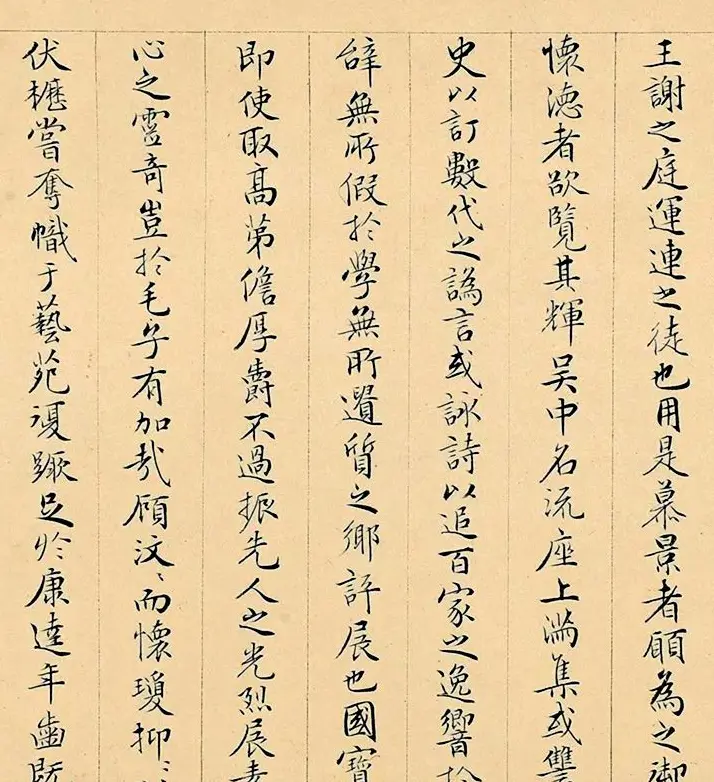 王謝之庭運連之徒也用是慕景者願為之御
懷德者欲覽其輝吳中名流座上滿集或讐
史以訂數代之譌言或詠詩以追百家之逸響於
辭無所假於學無所遺質之鄉評展也國寶
即使取高第儋厚爵不過振先人之光烈展
心之靈奇豈於毛子有加哉顧汶〻而懷瓊抑〻
伏櫪嘗奪幟于藝苑復蹶足於康逵年齒既